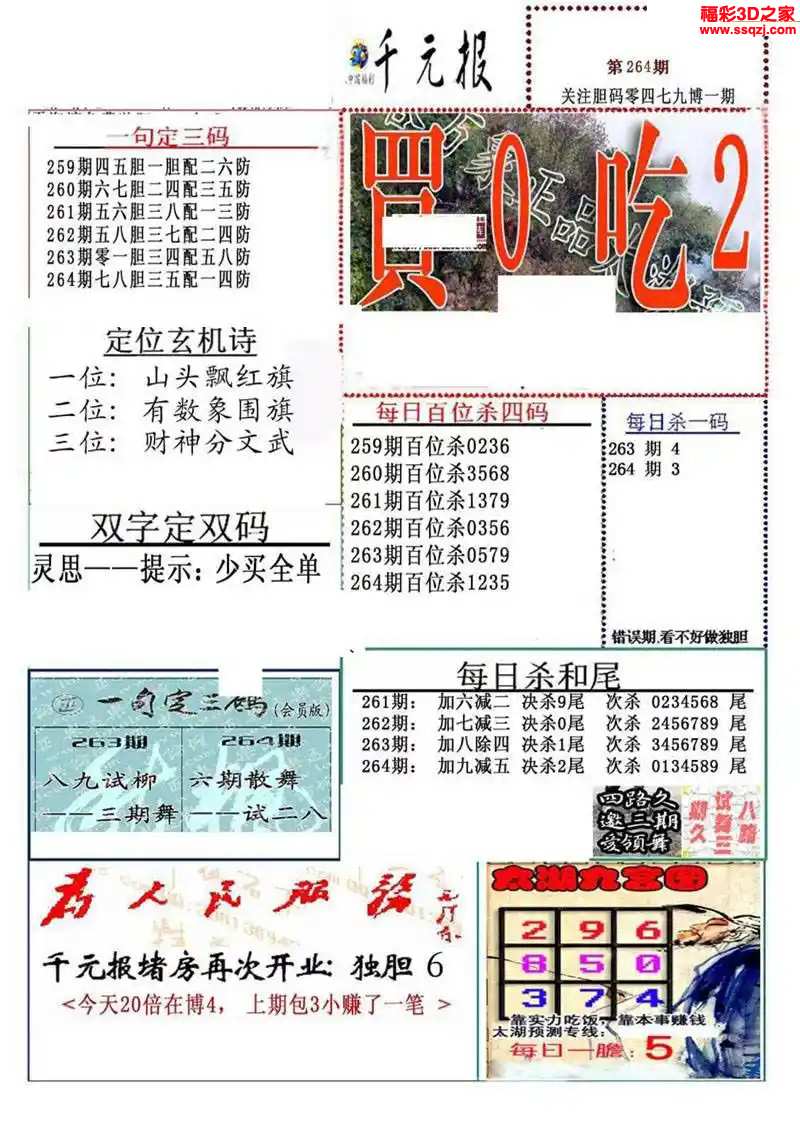 福彩3D之家
www.ssqzj.com
千元报
第264期
关注胆码零四七九博一期
一句定三码
259期四五胆一胆配二六防
260期六七胆二四配三五防
261期五六胆三八配一三防
262期五八胆三七配二四防
263期零一胆三四配五八防
264期七八胆三五配一四防
買0吃2
定位玄机诗
一位: 山头飘红旗
二位: 有数象围旗
三位: 财神分文武
每日百位杀四码
259期百位杀0236
260期百位杀3568
261期百位杀1379
262期百位杀0356
263期百位杀0579
264期百位杀1235
每日杀一码
263 期 4
264 期 3
错误期,看不好做独胆
双字定双码
灵思——提示: 少买全单
每日杀和尾
261期: 加六减二 决杀9尾 次杀 0234568 尾
262期: 加七减三 决杀0尾 次杀 2456789 尾
263期: 加八除四 决杀1尾 次杀 3456789 尾
264期: 加九减五 决杀2尾 次杀 0134589 尾
一句定三码(会员版)
263期 264期
八九试柳 六期散舞
——三期舞 ——试二八
四路久
邀三期
爱领舞
八路
试舞三
期久
为人民服务
千元报堵房再次开业: 独胆 6
<今天20倍在博4, 上期包3小赚了一笔 >
太湖九宫图
2 9 6
8 5 0
3 7 4
靠实力吃饭, 靠本事赚钱
太湖预测专线:
每日一胆: 5